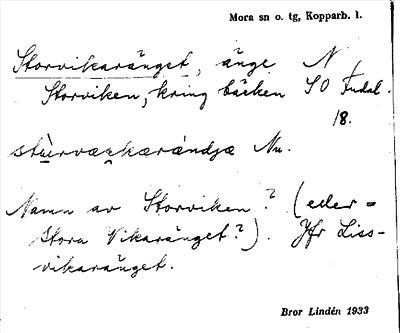 Mora sn o. tg, Kopparb. l.
Storvikaränget, änge N
Storviken, kring bäcken SO Indal.
18.
stùərvækærándjæ Nu.
Namn av Storviken? (eller =
Stora Vikaränget?). Jfr Liss-
vikaränget.
Bror Lindén 1933